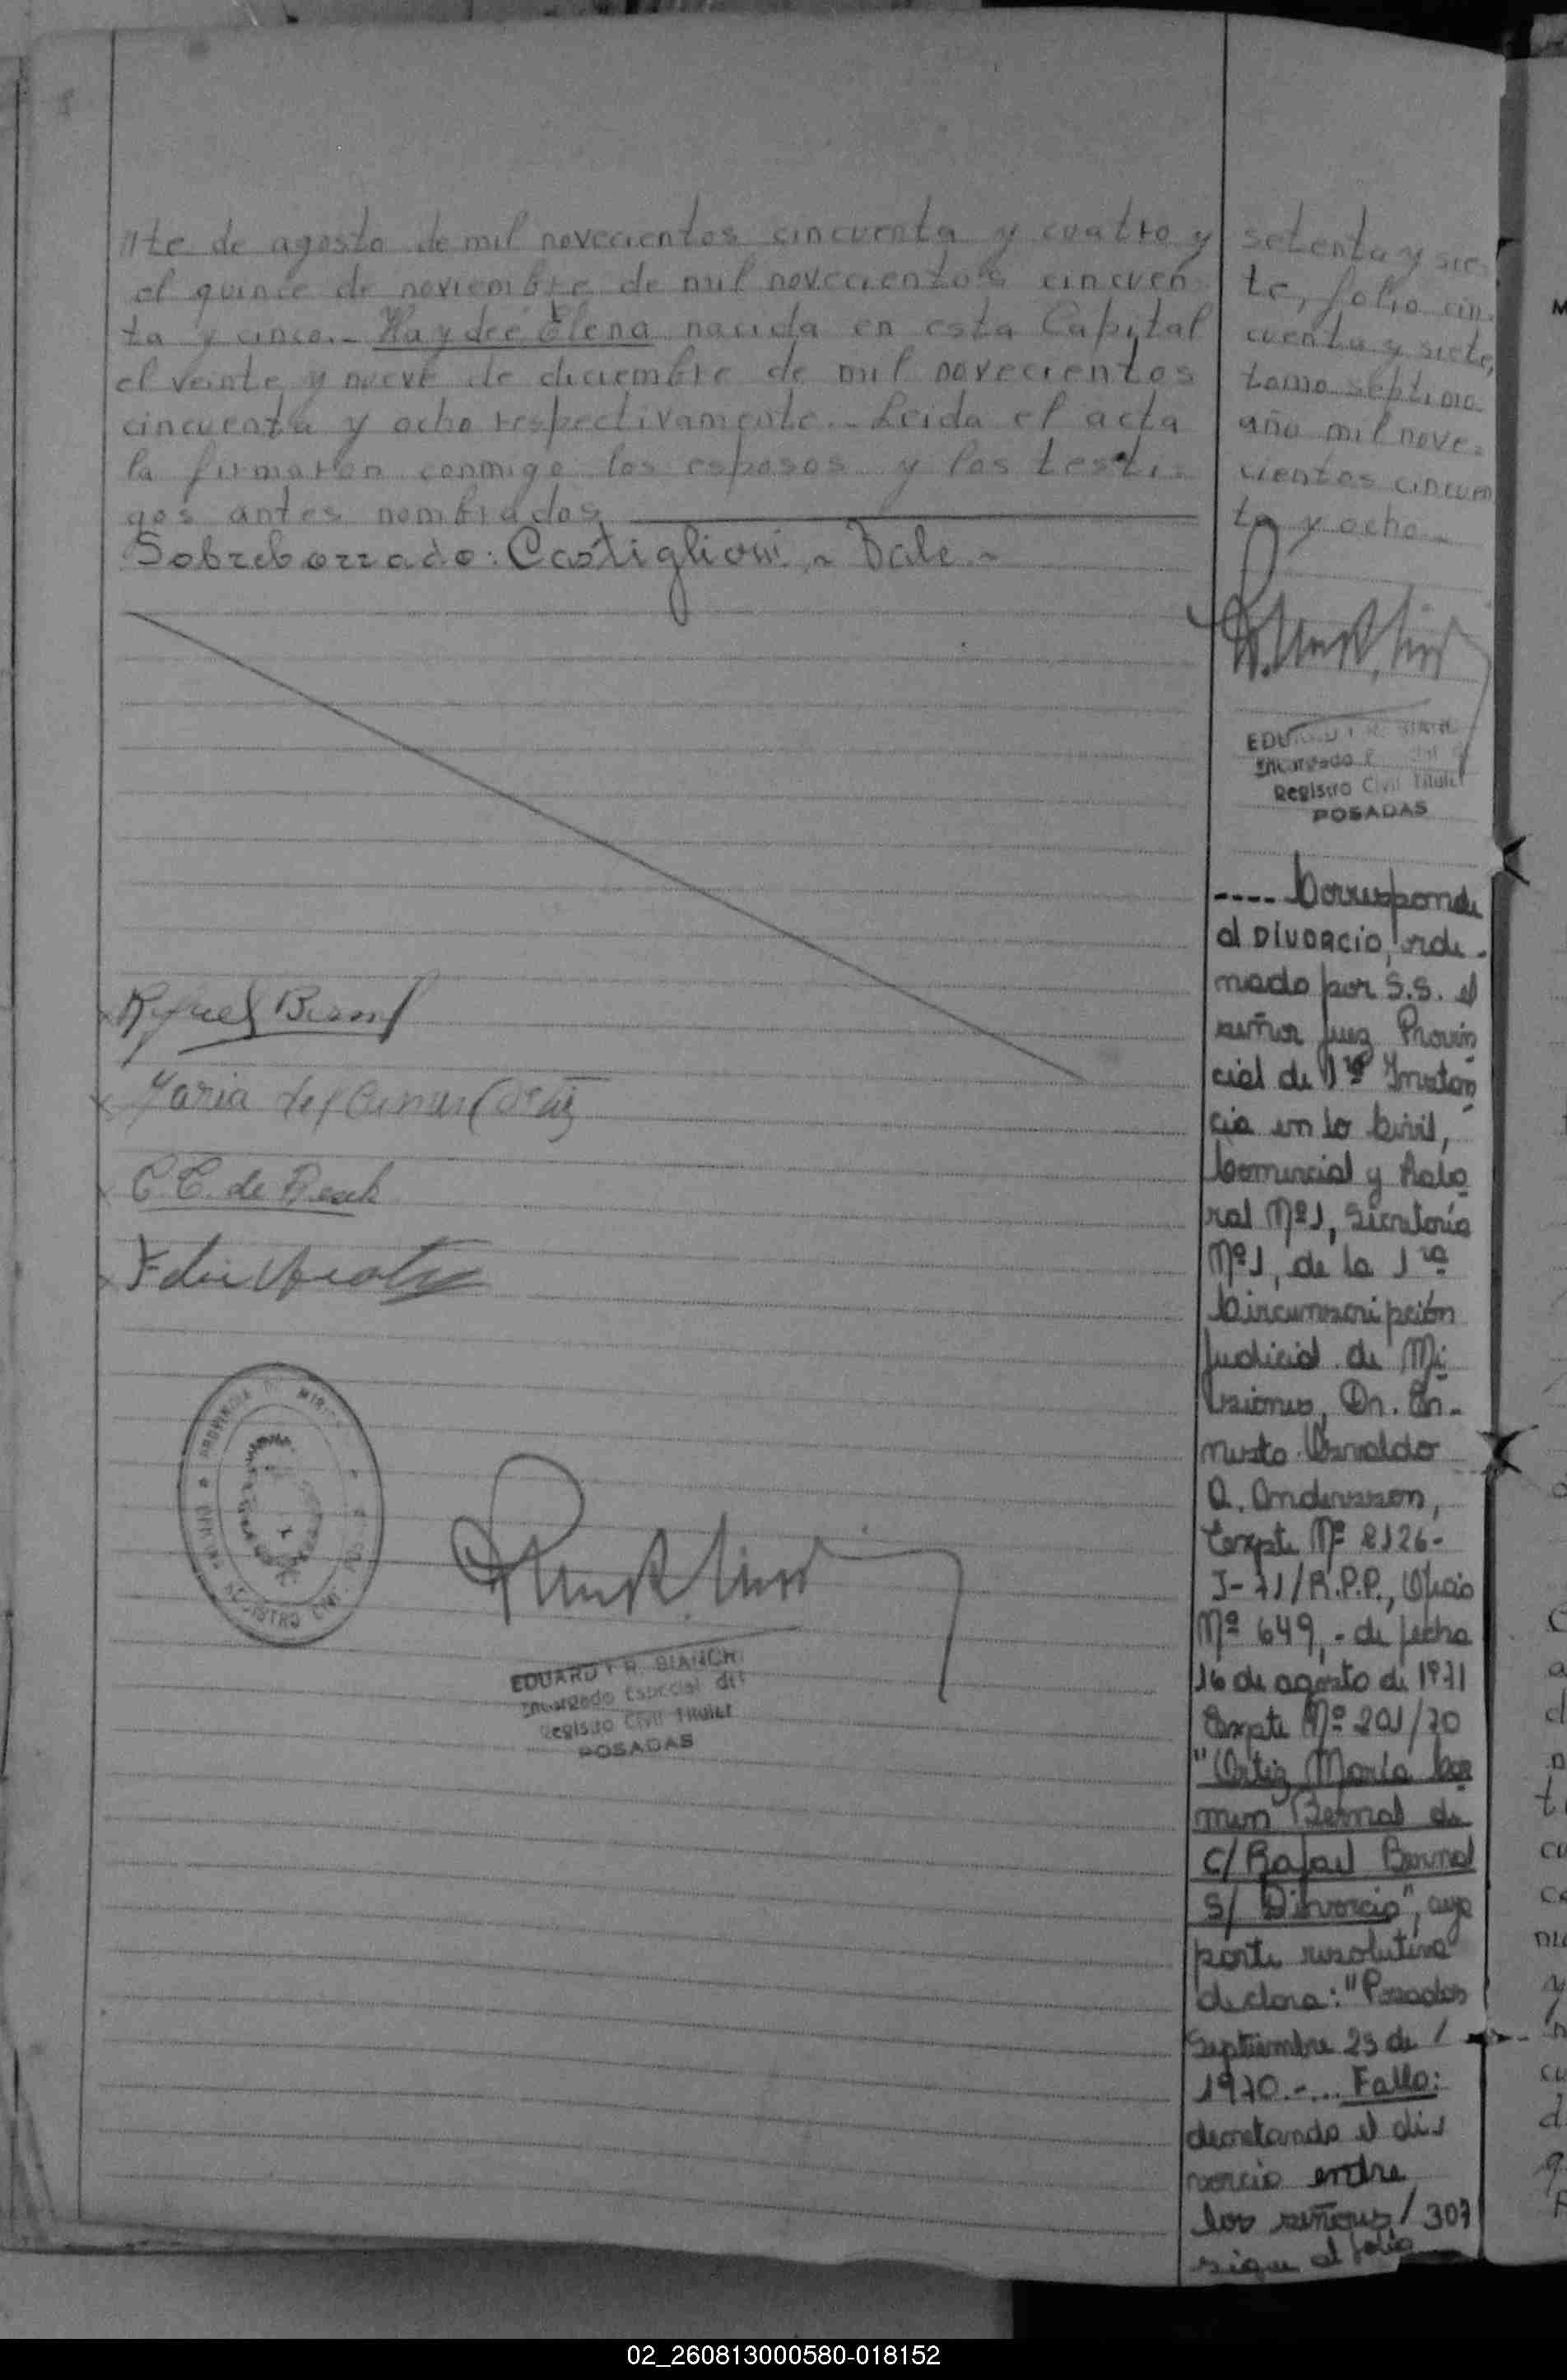 "te de agosto de mil novecientos cincuenta y cuatro y
el quince de noviembre de mil novecientos cincuen
ta y cinco.- Haydeé Elena nacida en esta Capital
el veinte y nueve de diciembre de mil novecientos
cincuenta y ocho respectivamente.- Leida el acta
la firmaron conmigo los esposos y los testi-
gos antes nombrados
Sobreborrado: Castiglioni.~ Vale.~
Rafael Bernal
Maria del Carmen Ortiz
C.C. de
PROVINCIA DE MISIONES
REGISTRO CIVIL
EDUARDO R. BIANCHI
Encargado Especial del
Registro Civil Titular
POSADAS
setenta y sie-
te, folio cin-
cuenta y siete,
tomo septimo
año mil nove-
cientos cincuen
ta y ocho.-
EDUARDO R. BIANCHI
Encargado
Registro Civil Titular
POSADAS
---- Corresponde
al DIVORCIO, orde-
nado por S.S. el
señor Juez Provin
cial de 1ra Instan
cia en lo Civil,
Comercial y Labo
ral Nº1, Secretaría
Nº1, de la 1ra
Circunscripción
Judicial de Mi-
siones, Dr. Er-
nesto Osvaldo
A. Andersson,
Expte Nº 2126-
J-71/R.P.P., Oficio
Nº 649,- de fecha
16 de agosto de 1971
Expte Nº 201/70
"Ortiz María Car
men Bernal de
C/ Rafael Bernal
S/ Divorcio", cuya
parte resolutiva
declara: "Posadas
Septiembre 23 de /
1970.-... Fallo:
decretando el di-
vorcio entre
los señores / 307
sigue al folio
02_260813000580-018152